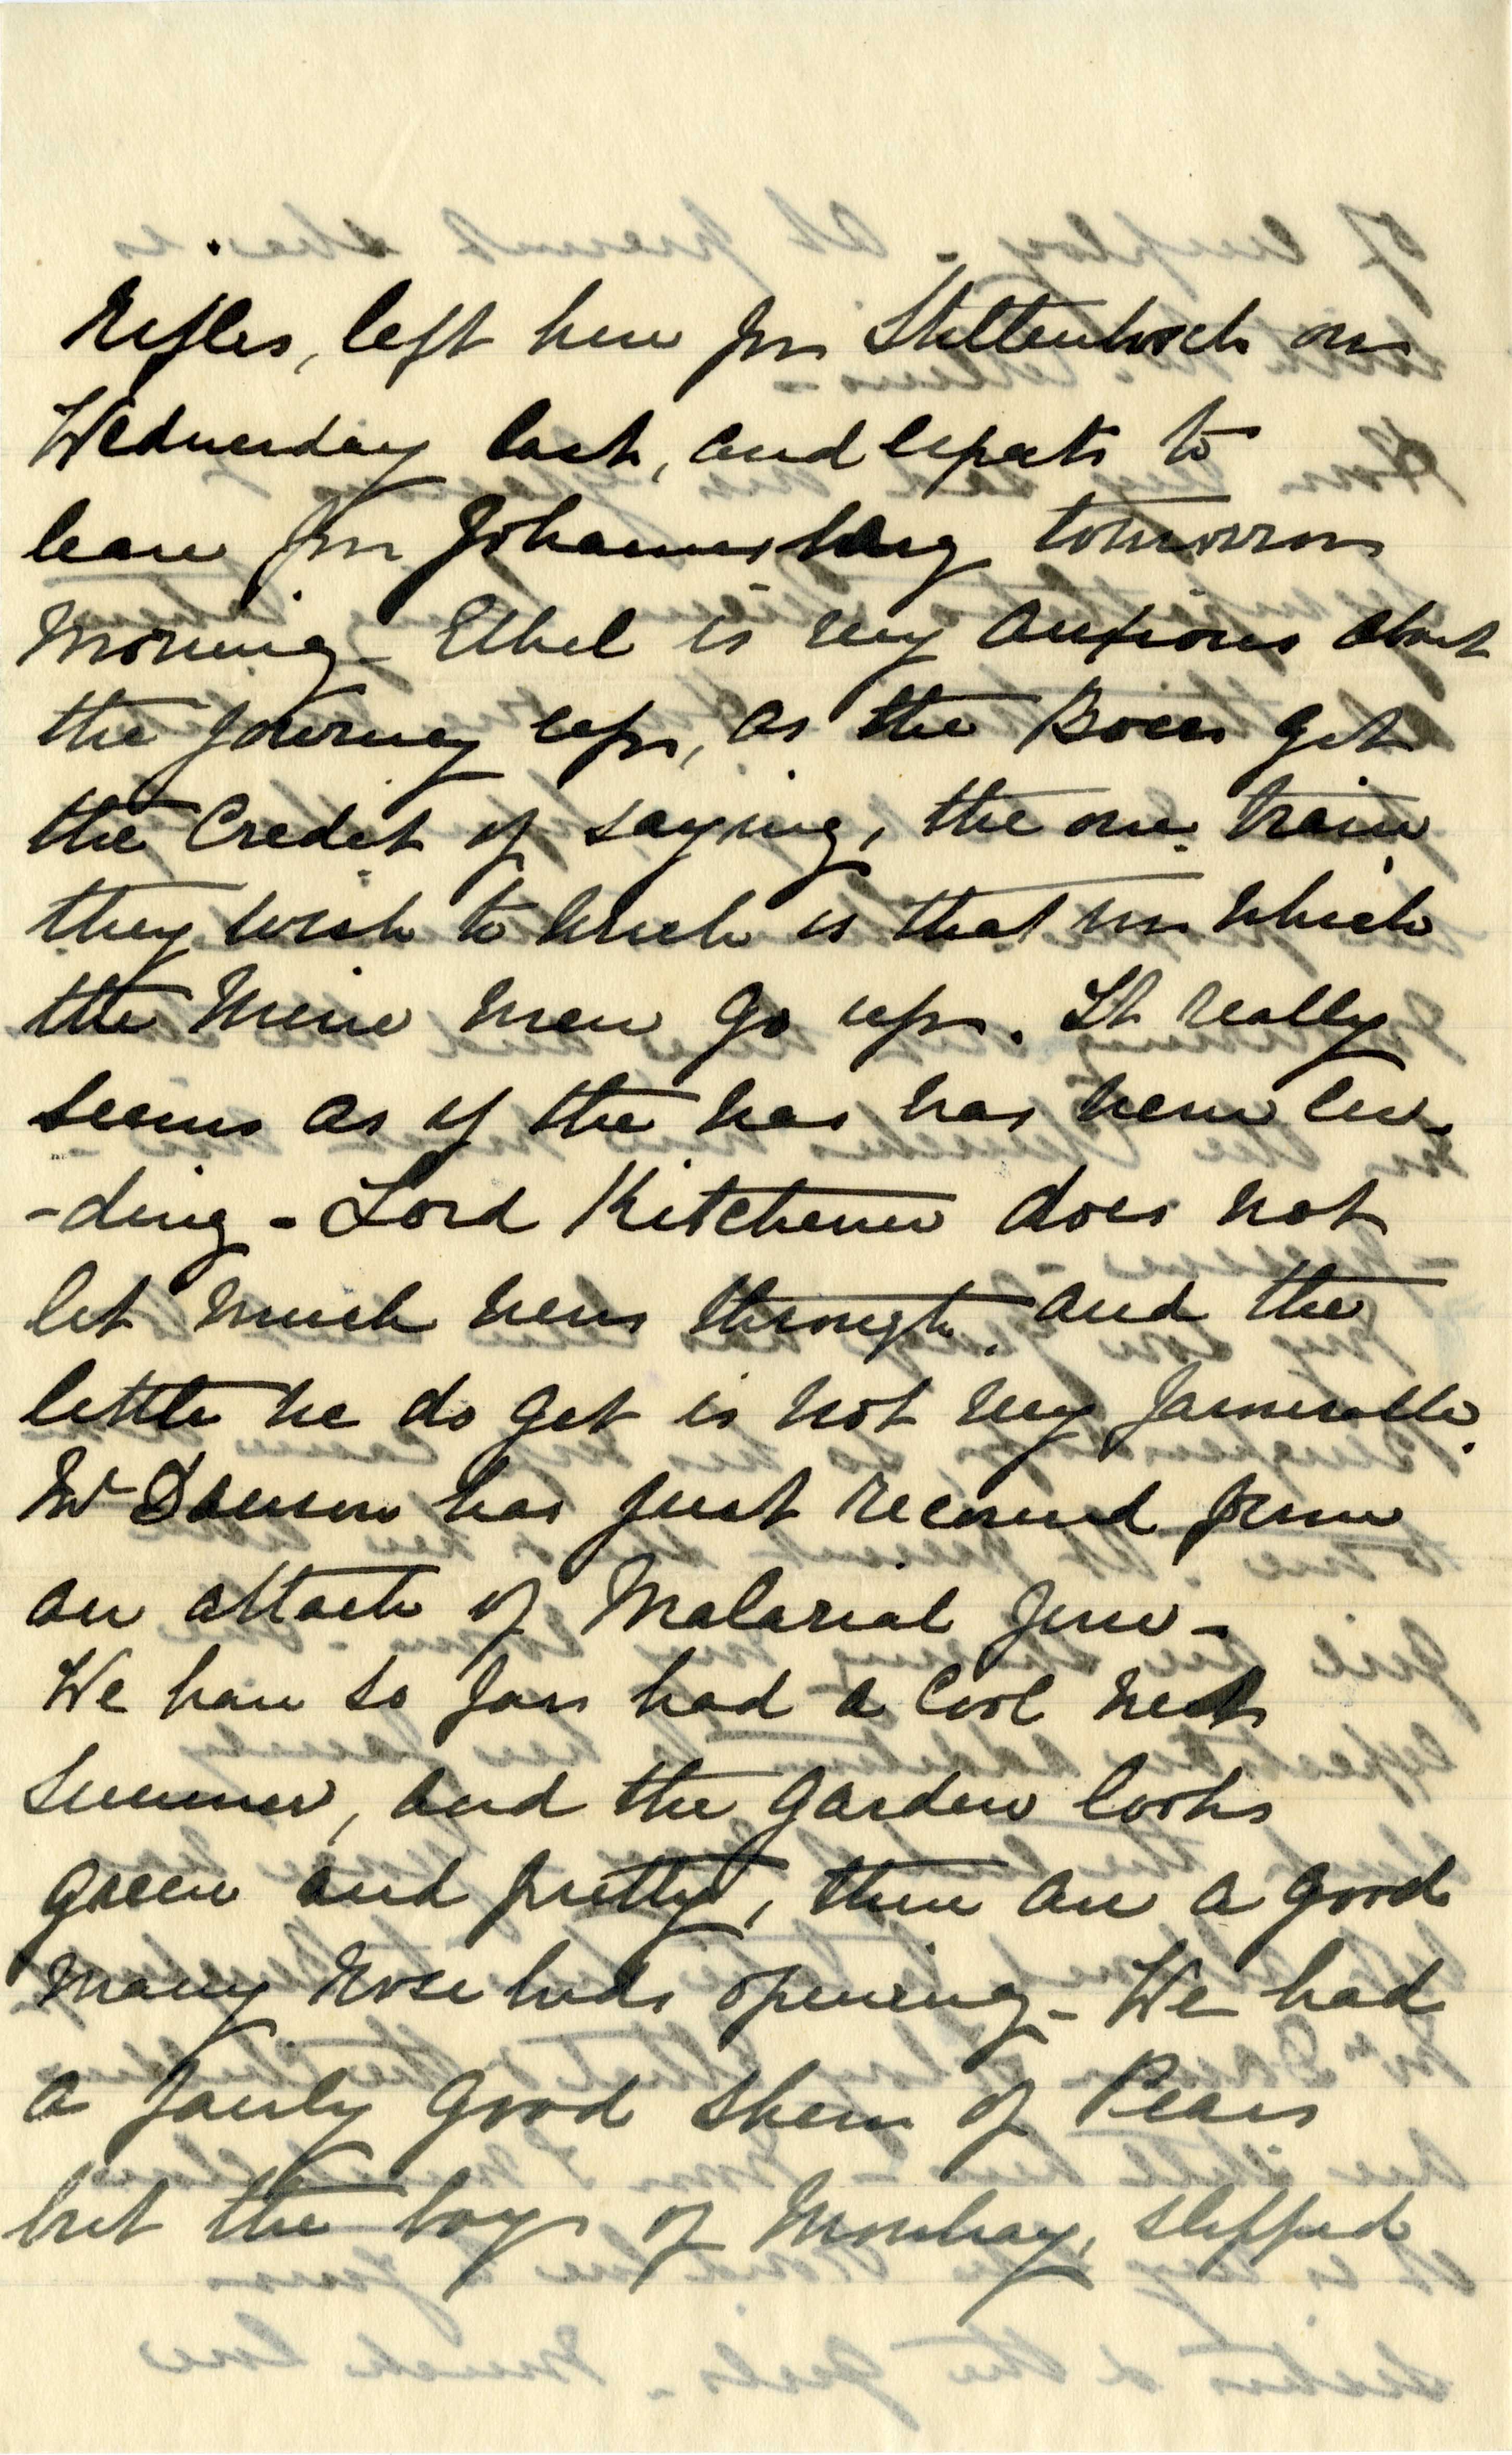 Rifles, left here for Stellenbosch on
Wednesday last, and expects to
leave for Johannesburg tomorrow
morning - Ethel is very anxious about
the journey up, as the Boers get
the credit of saying, the one train
they wish to wreck is that in which
the Mine men go up. It really
seems as if the war was never en-
-ding - Lord Kitchener does not
let much news through and the
little we do get is not very favourable.
Mr Dawson has just recovered from
an attack of Malarial fever -
We have so far had a cool
summer, and the garden looks
green and pretty, there are a good
many rose buds opening - We had
a fairly good show of Pears
but the boys of Mowbray, slipped